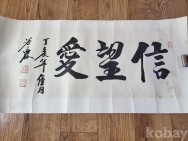 信望愛
丁亥年 佳月
kobay